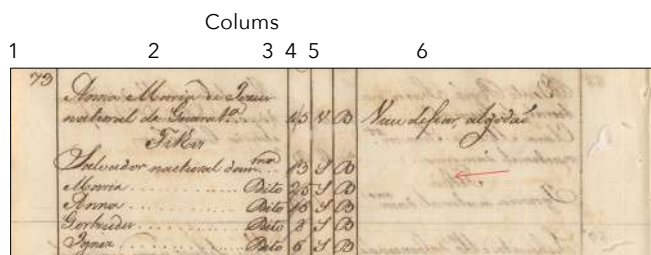 Colums
1 2 3 4 5 6
73
Anna Maria de Jesus
natural de Guara tª. 45 V B Vive de fiar, algodaõ
Filhos
Salvador natural da mma 13 S B
Maria Dito 25 S B
Anna Dito 16 S B
Gertrudes Dito 8 S B
Ignez Dito 6 S B